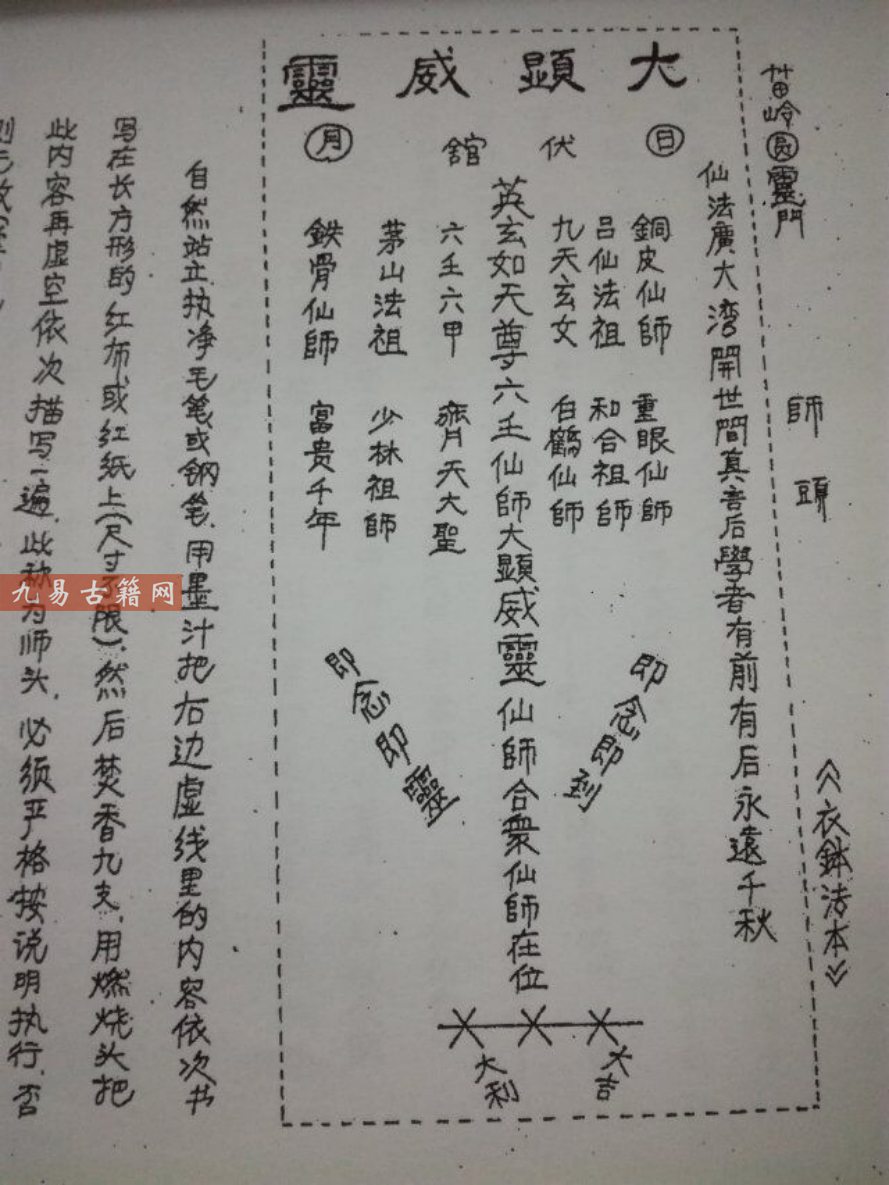 苗岭圆靈門
師頭
《衣鉢法本》
大顯威靈
日 伏 舘 月
仙法廣大湾開世間真言后學者有前有后永遠千秋
銅皮仙師 重眼仙師
吕仙法祖 和合祖師
九天玄女 白鶴仙師
英玄如天尊六壬仙師大顯威靈仙師合衆仙師在位
六壬六甲 齊天大聖
茅山法祖 少林祖師
鉄骨仙師 富贵千年
即念即到
即念即靈
大吉
大利
自然站立,执净毛笔或钢笔,用墨汁把右边虚线里的内容依次书
写在长方形的红布或红纸上(尺寸不限),然后焚香九支,用燃烧头把
此内容再虚空依次描写一遍,此称为师头,必须严格按说明执行,否
九易古籍网